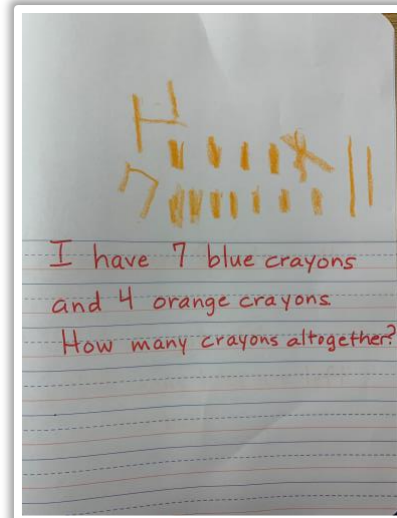 4
7 11
I have 7 blue crayons
and 4 orange crayons.
How many crayons altogether?